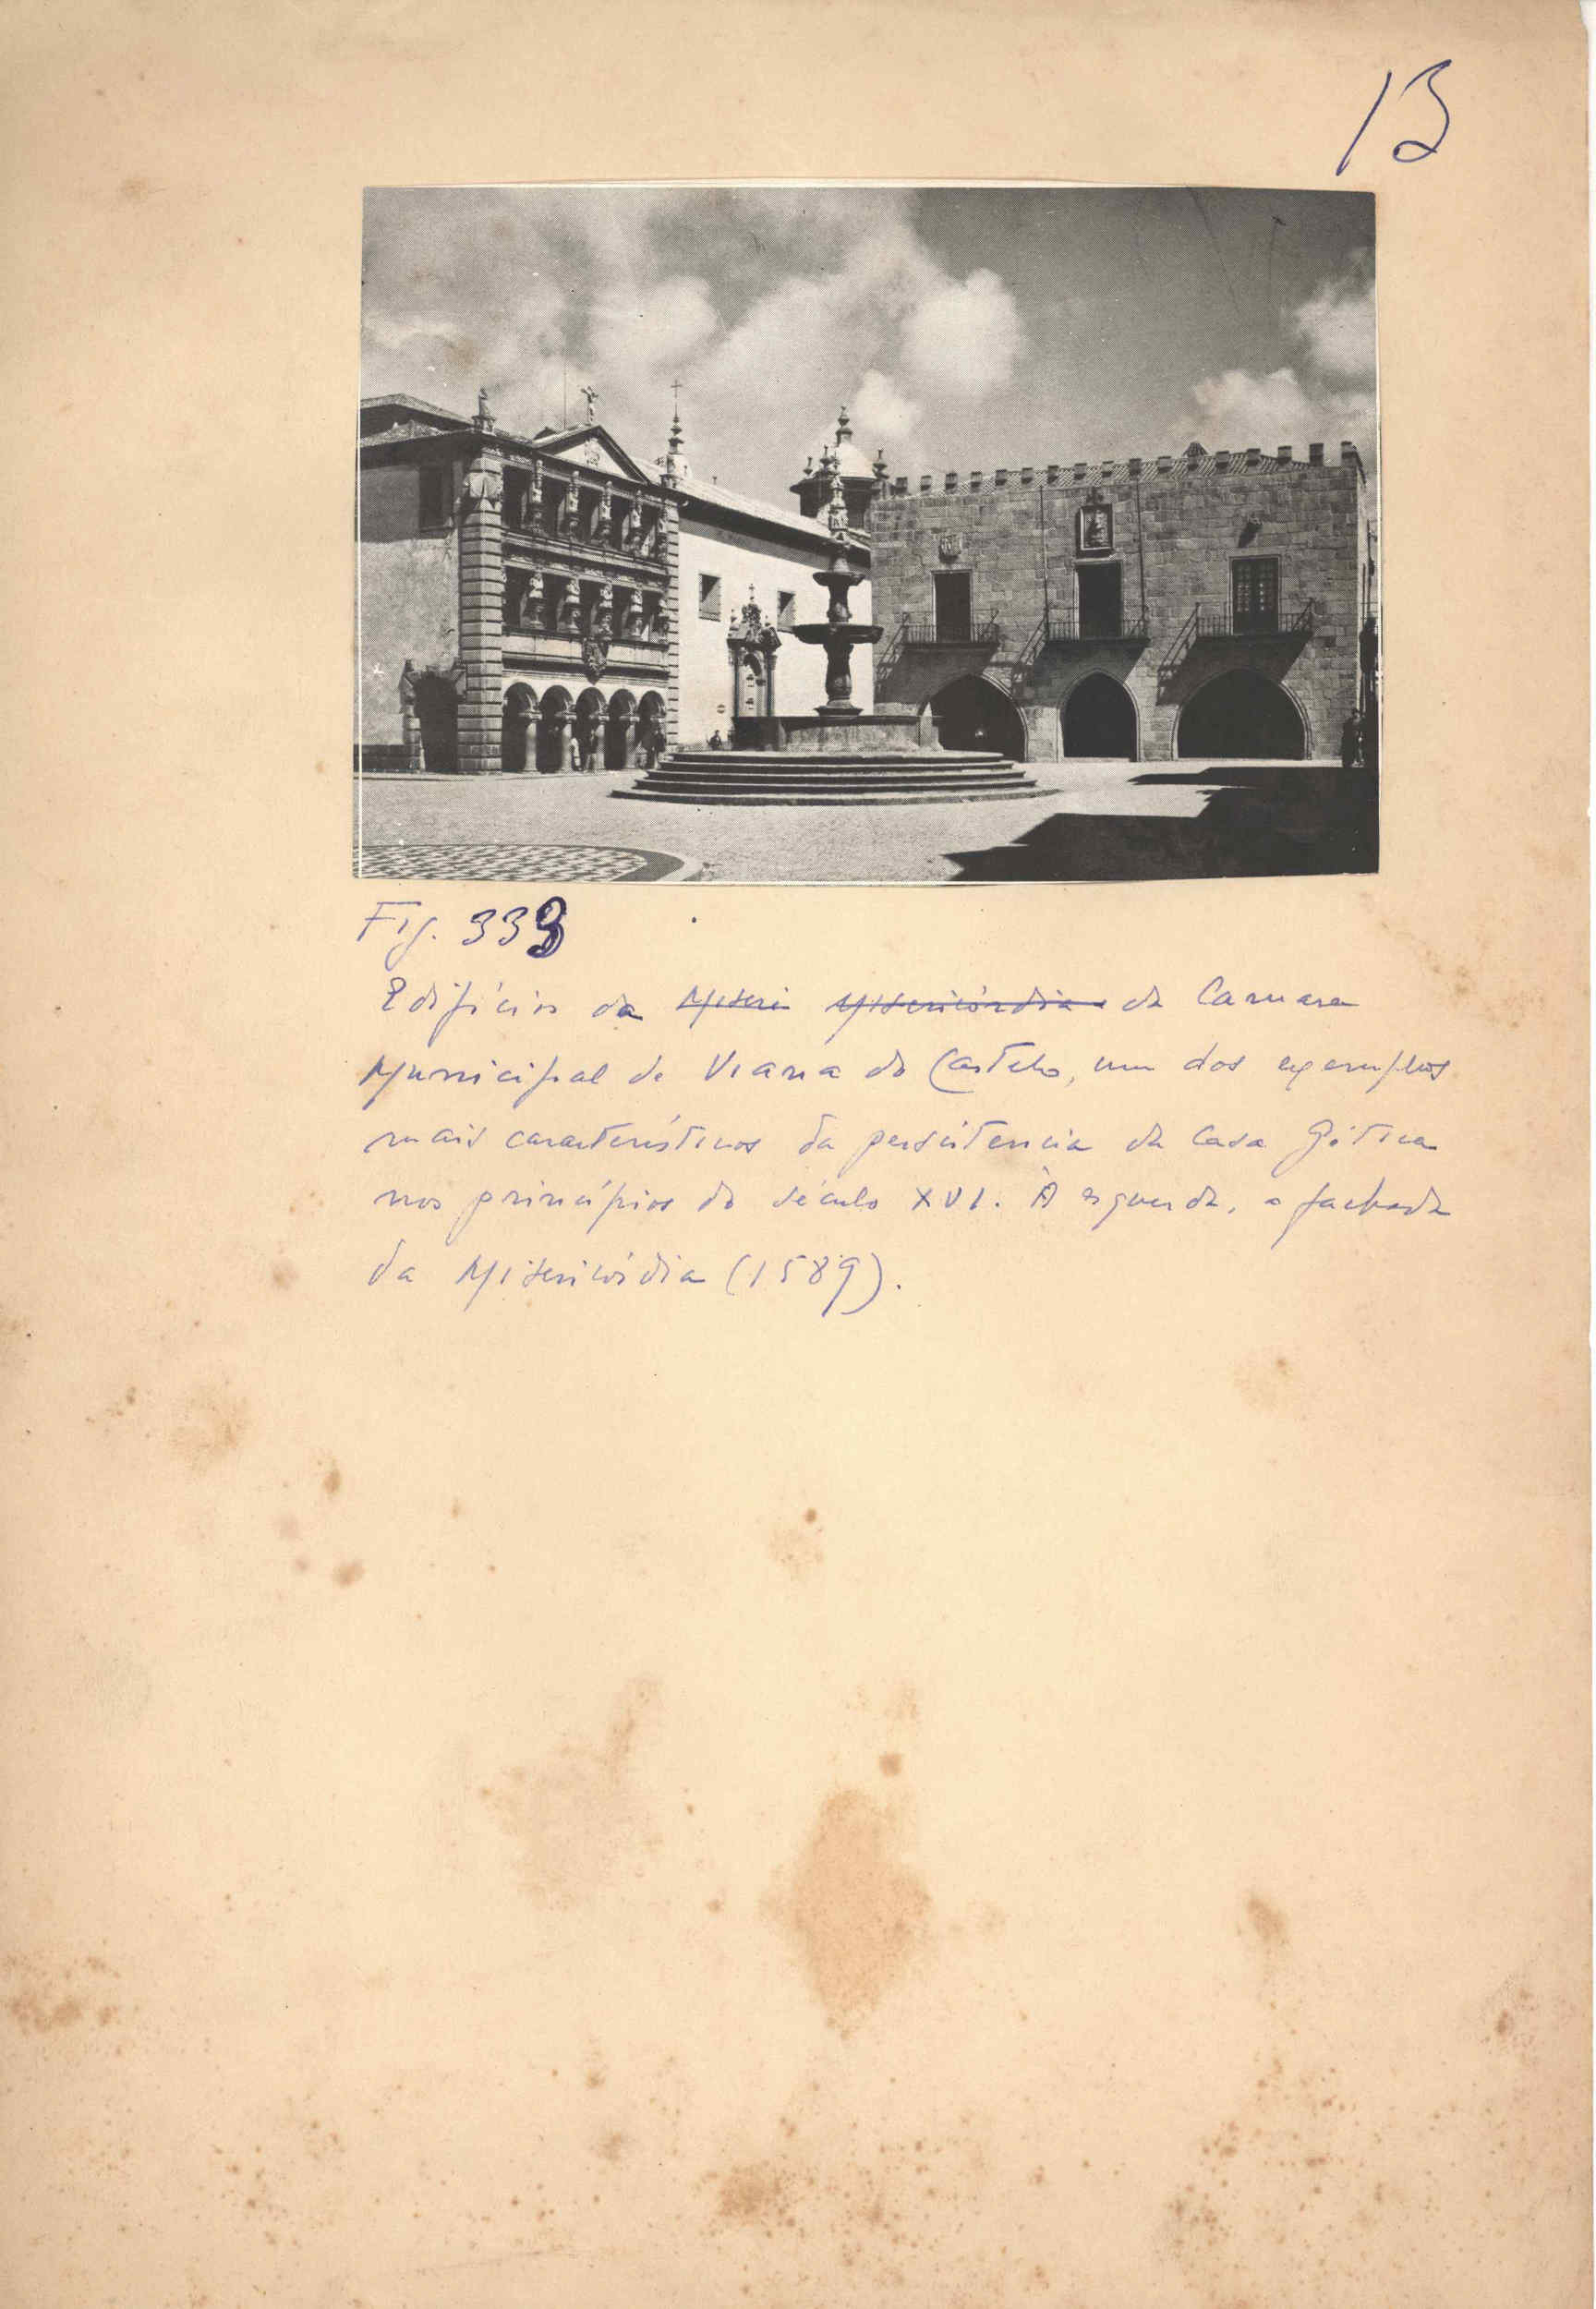 13
Fig. 333
Edifício da Miseri Misericórdia da Camara
Municipal de Viana do Castelo, um dos exemplos
mais característicos da persistencia da Casa Gótica
nos princípios do século XVI. À esquerda, a fachada
da Misericórdia (1589).